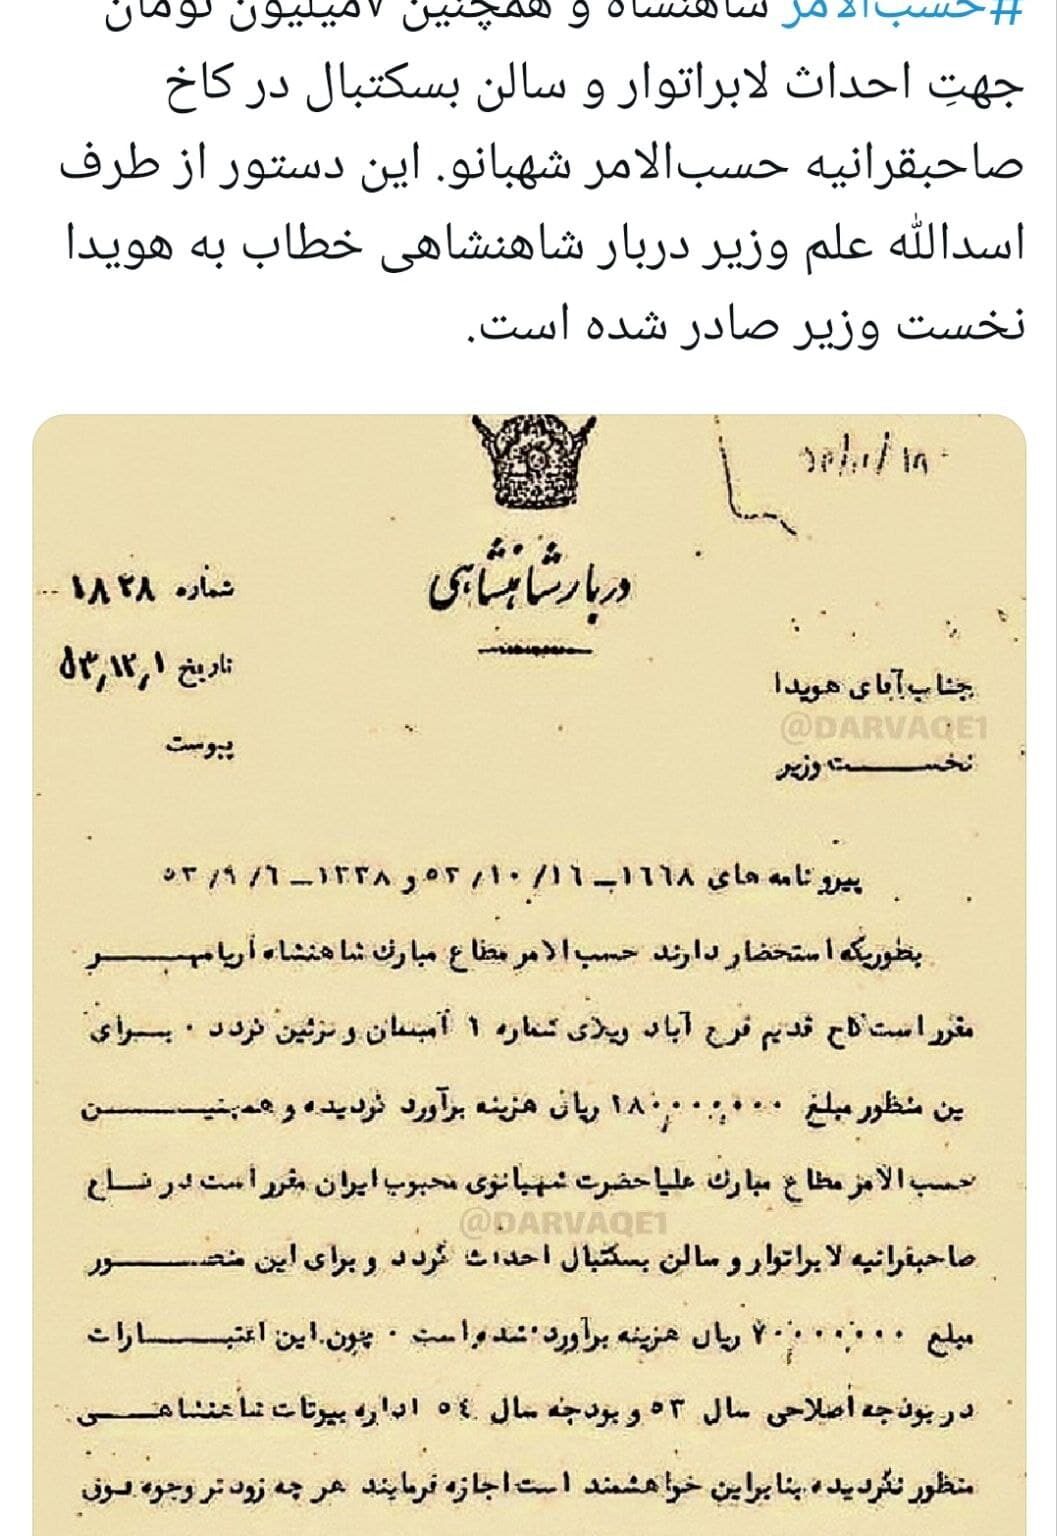 #حسب‌الامر شاهنشاه و همچنین ۷میلیون تومان
جهتِ احداث لابراتوار و سالن بسکتبال در کاخ
صاحبقرانیه حسب‌الامر شهبانو. این دستور از طرف
اسدالله علم وزیر دربار شاهنشاهی خطاب به هویدا
نخست وزیر صادر شده است.
دربار شاهنشاهی
شماره ۱۸۲۸
تاریخ ۵۳,۱۲,۱
پیوست
جناب آقای هویدا
@DARVAQE1
نخست وزیر
پیرو نامه های ۱۶۶۸ــ ۱۶/ ۱۰/ ۵۳ و ۱۳۳۸ــ ۶/ ۹/ ۵۳
بطوریکه استحضار دارند حسب الامر مطاع مبارک شاهنشاه آریامهر
مقرر است کاخ قدیم فرح آباد ویلای شماره ۱ و تزئین گردد ۰ برای
ین منظور مبلغ ۱۸۰,۰۰۰,۰۰۰ ریال هزینه برآورد گردیده و همچنین
حسب الامر مطاع مبارک علیاحضرت شهبانوی محبوب ایران مقرر است در کاخ
@DARVAQE1
صاحبقرانیه لابراتوار و سالن بسکتبال احداث گردد و برای این منظور
مبلغ ۷۰,۰۰۰,۰۰۰ ریال هزینه برآورد شده است ۰ چون این اعتبارات
در بودجه اصلاحی سال ۵۳ و بودجه سال ۵۴ اداره بیوتات شاهنشاهی
منظور نگردیده بنابراین خواهشمند است اجازه فرمایند هر چه زودتر وجوه فوق